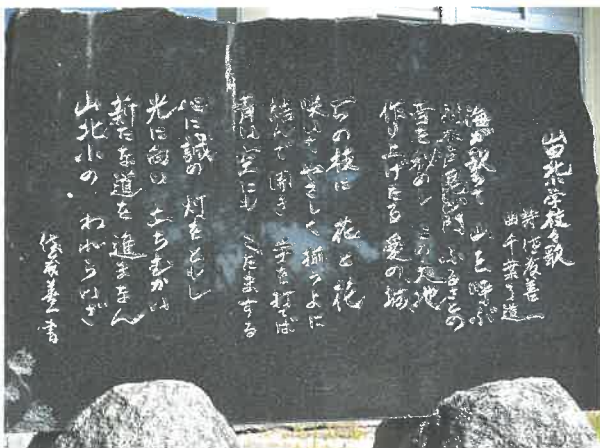 山北小学校々歌
善一
曲 千葉了道
海が 山を呼ぶ
ふるさとの
雪を この大地
作り上げたる 愛の城
枝に 花と花
咲いてやさしく 揃うように
結んで開き 手を打てば
青い空にも こだまする
心に誠の 灯をともし
光に向い 立ちむかい
新たな道を 進まなん
山北小の われらいざ
善一書